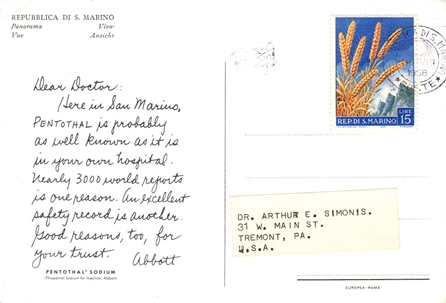 REPUBBLICA DI S. MARINO
Panorama View
Vue Ansicht
Dear Doctor:
Here in San Marino,
PENTOTHAL is probably
as well known as it is
in your own hospital.
Nearly 3000 world reports
is one reason. An excellent
safety record is another.
Good reasons, too, for
your trust. Abbott
PENTOTHAL® SODIUM
(Thiopental Sodium for Injection, Abbott)
LIRE
REP. DI S. MARINO 15
DI S. MARINO
DR. ARTHUR E. SIMONIS.
31 W. MAIN ST.
TREMONT, PA.
U.S.A.
EUROPEA-ROMA